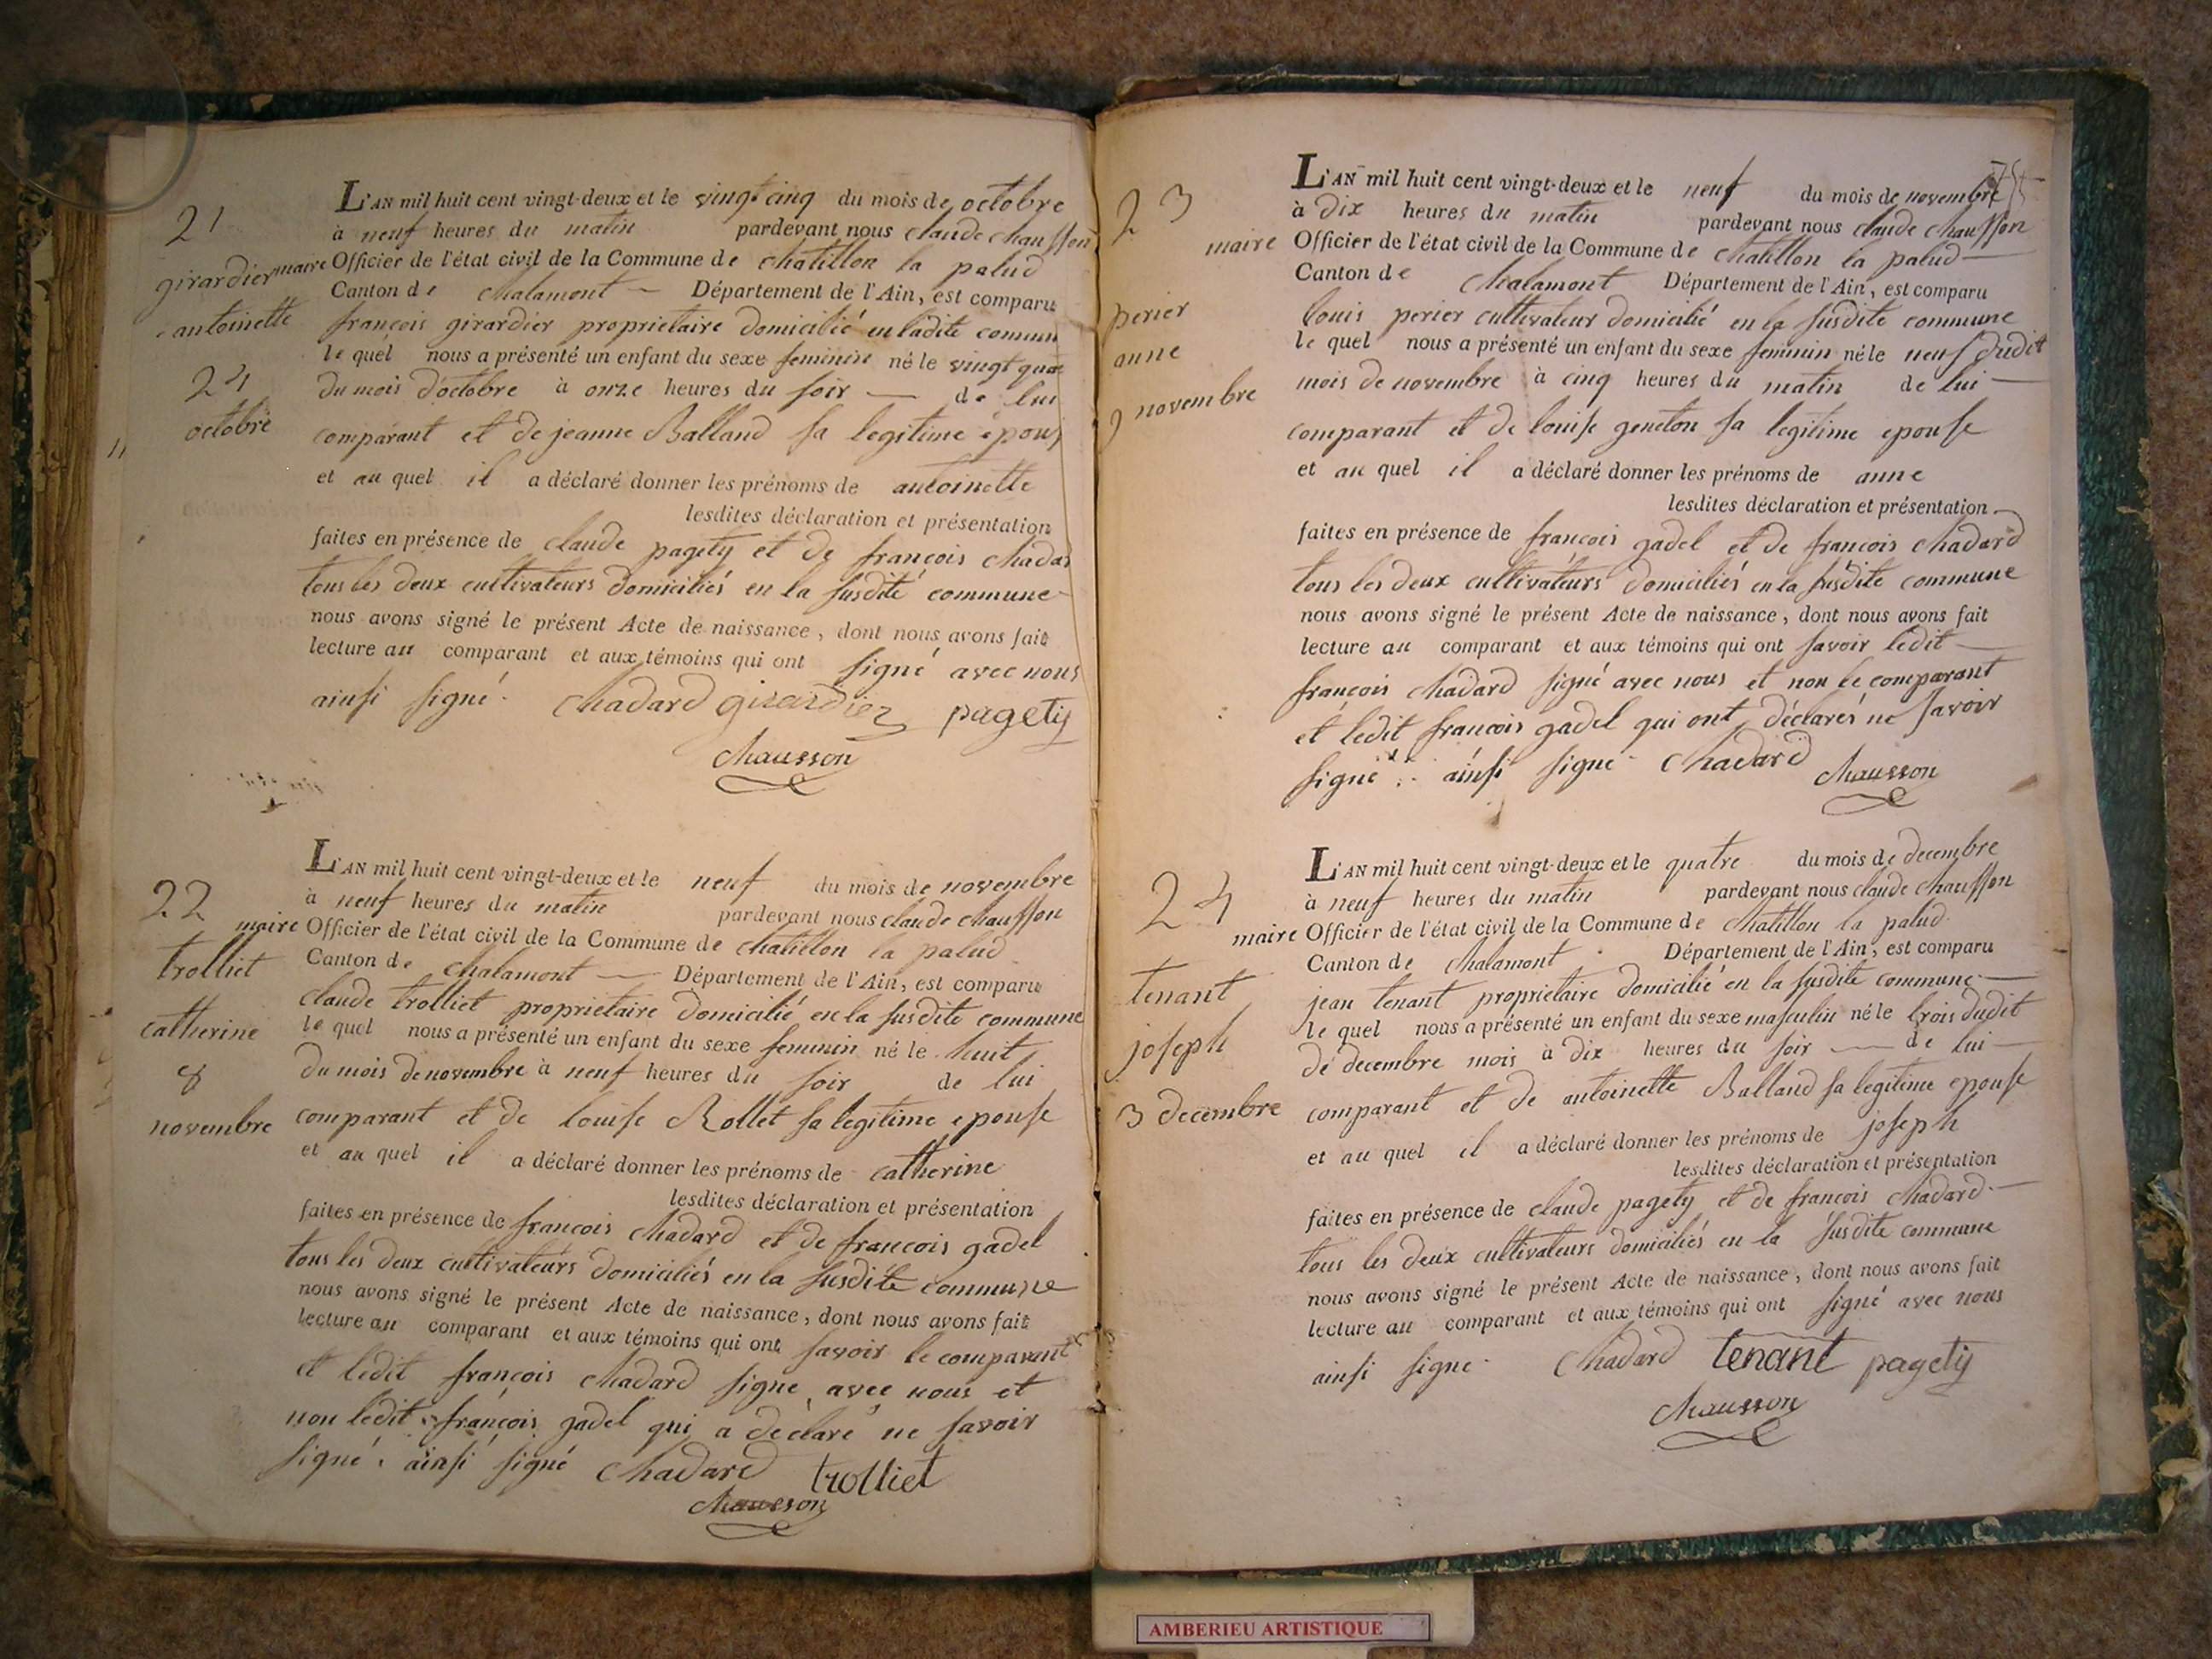 21
girardier
antoinette
24
octobre
L'AN mil huit cent vingt-deux et le vingt cinq du mois de octobre
à neuf heures du matin pardevant nous claude chausson
maire Officier de l'état civil de la Commune de chatillon la palud
Canton de chalamont — Département de l'Ain, est comparu
françois girardier proprietaire domicilié en ladite commun
le quel nous a présenté un enfant du sexe feminin né le vingt quat
du mois d'octobre à onze heures du soir — de lui
comparant et de jeanne Balland sa legitime epous
et au quel il a déclaré donner les prénoms de antoinette
lesdites déclaration et présentation
faites en présence de claude pagety et de françois chadar
tous les deux cultivateurs domiciliés en la susdite commune
nous avons signé le présent Acte de naissance, dont nous avons fait
lecture au comparant et aux témoins qui ont signé avec nous
ainsi signé. chadard girardier pagety
chausson
22
trolliet
catherine
8
novembre
L'AN mil huit cent vingt-deux et le neuf du mois de novembre
à neuf heures du matin pardevant nous claude chausson
maire Officier de l'état civil de la Commune de chatillon la palud
Canton de chalamont — Département de l'Ain, est comparu
claude trolliet proprietaire domicilié en la susdite commune
le quel nous a présenté un enfant du sexe feminin né le huit
du mois de novembre à neuf heures du soir de lui
comparant et de louise Rollet sa legitime epouse
et au quel il a déclaré donner les prénoms de catherine
lesdites déclaration et présentation
faites en présence de françois chadard et de françois gadel
tous les deux cultivateurs domiciliés en la susdite commune
nous avons signé le présent Acte de naissance, dont nous avons fait
lecture au comparant et aux témoins qui ont savoir le comparant
et ledit françois chadard signé avec nous et
non ledit françois gadel qui a déclaré ne savoir
signé. ainsi signé chadard trolliet
chausson
23
perier
anne
9 novembre
L'AN mil huit cent vingt-deux et le neuf du mois de novembre
à dix heures du matin pardevant nous claude chausson
maire Officier de l'état civil de la Commune de chatillon la palud —
Canton de chalamont Département de l'Ain, est comparu
louis perier cultivateur domicilié en la susdite commune
le quel nous a présenté un enfant du sexe feminin né le neuf dudit
mois de novembre à cinq heures du matin de lui —
comparant et de louise geneton sa legitime epouse
et au quel il a déclaré donner les prénoms de anne
lesdites déclaration et présentation
faites en présence de françois gadel et de françois chadard
tous les deux cultivateurs domiciliés en la susdite commune
nous avons signé le présent Acte de naissance, dont nous avons fait
lecture au comparant et aux témoins qui ont savoir ledit —
françois chadard signé avec nous et non le comparant
et ledit françois gadel qui ont déclarés ne savoir
signé. ainsi signé chadard chausson
24
tenant
joseph
3 decembre
L'AN mil huit cent vingt-deux et le quatre du mois de decembre
à neuf heures du matin pardevant nous claude chausson
maire Officier de l'état civil de la Commune de chatillon la palud
Canton de chalamont Département de l'Ain, est comparu
jean tenant proprietaire domicilié en la susdite commune —
le quel nous a présenté un enfant du sexe masculin né le trois dudit
de decembre mois à dix heures du soir — de lui —
comparant et de antoinette Balland sa legitime epouse
et au quel il a déclaré donner les prénoms de joseph
lesdites déclaration et présentation
faites en présence de claude pagety et de françois chadard —
tous les deux cultivateurs domiciliés en la susdite commune
nous avons signé le présent Acte de naissance, dont nous avons fait
lecture au comparant et aux témoins qui ont signé avec nous
ainsi signé. chadard tenant pagety
chausson
AMBERIEU ARTISTIQUE